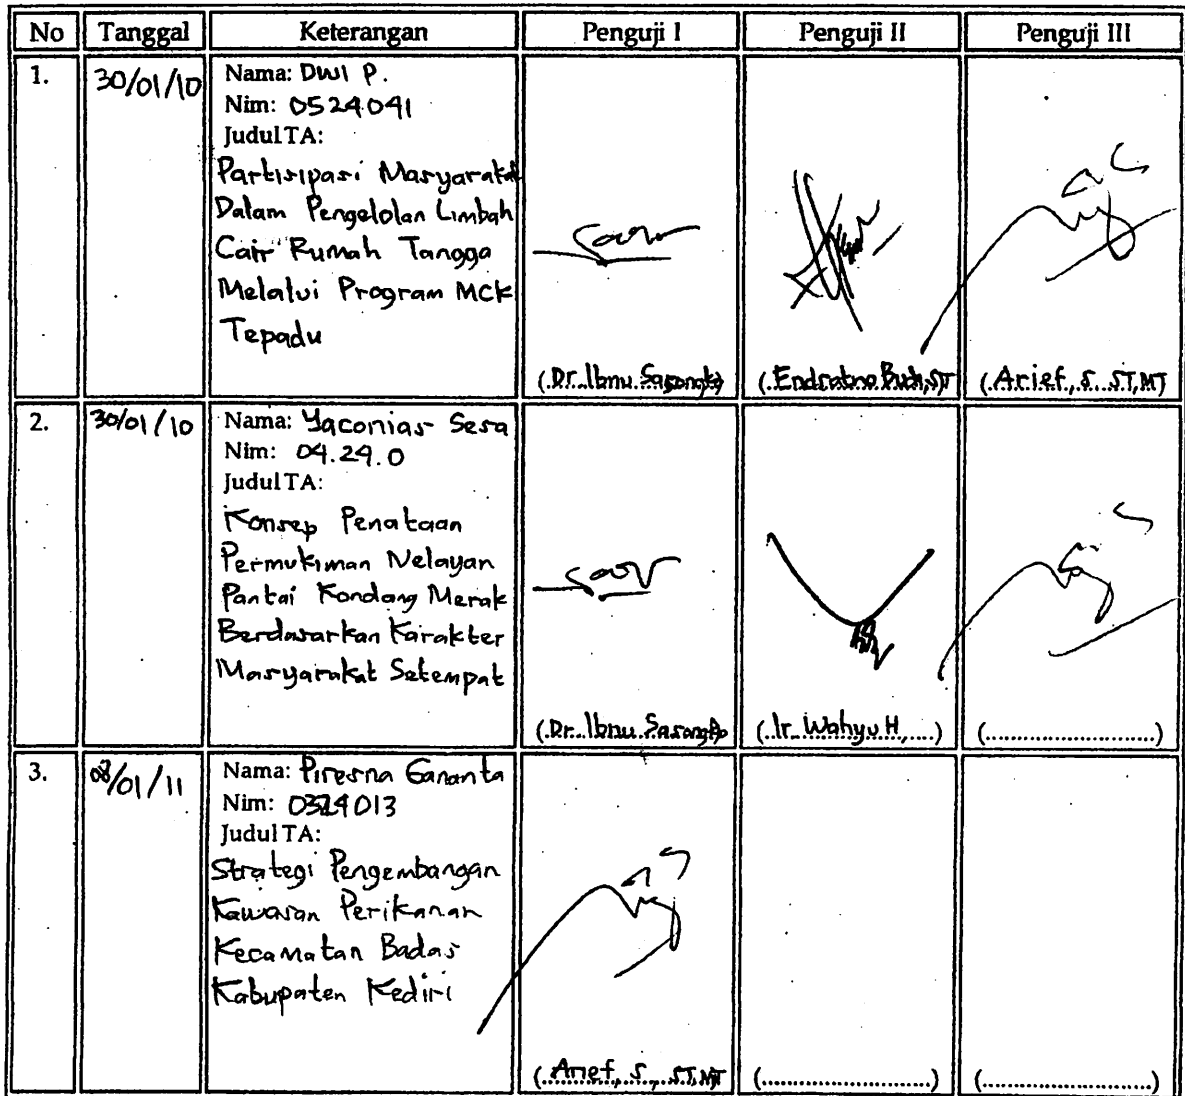 No Tanggal Keterangan Penguji I Penguji II Penguji III
1. 30/01/10 Nama: Dwi P.
Nim: 0524041
Judul TA:
Partisipasi Masyarakat
Dalam Pengelolan Limbah
Cair Rumah Tangga
Melalui Program MCK
Tepadu
(Dr. Ibnu Sasongko) (Endratno Budi, ST (Arief, S. ST, MT)
2. 30/01/10 Nama: Yaconias Sesa
Nim: 04.24.0
Judul TA:
Konsep Penataan
Permukiman Nelayan
Pantai Kondang Merak
Berdasarkan Karakter
Masyarakat Setempat
(Dr. Ibnu Sasongko (Ir. Wahyu H, ....) (..........................)
3. 08/01/11 Nama: Piresna Gananta
Nim: 0324013
Judul TA:
Strategi Pengembangan
Kawasan Perikanan
Kecamatan Badas
Kabupaten Kediri
(Arief, S., ST, MT (..........................) (..........................)